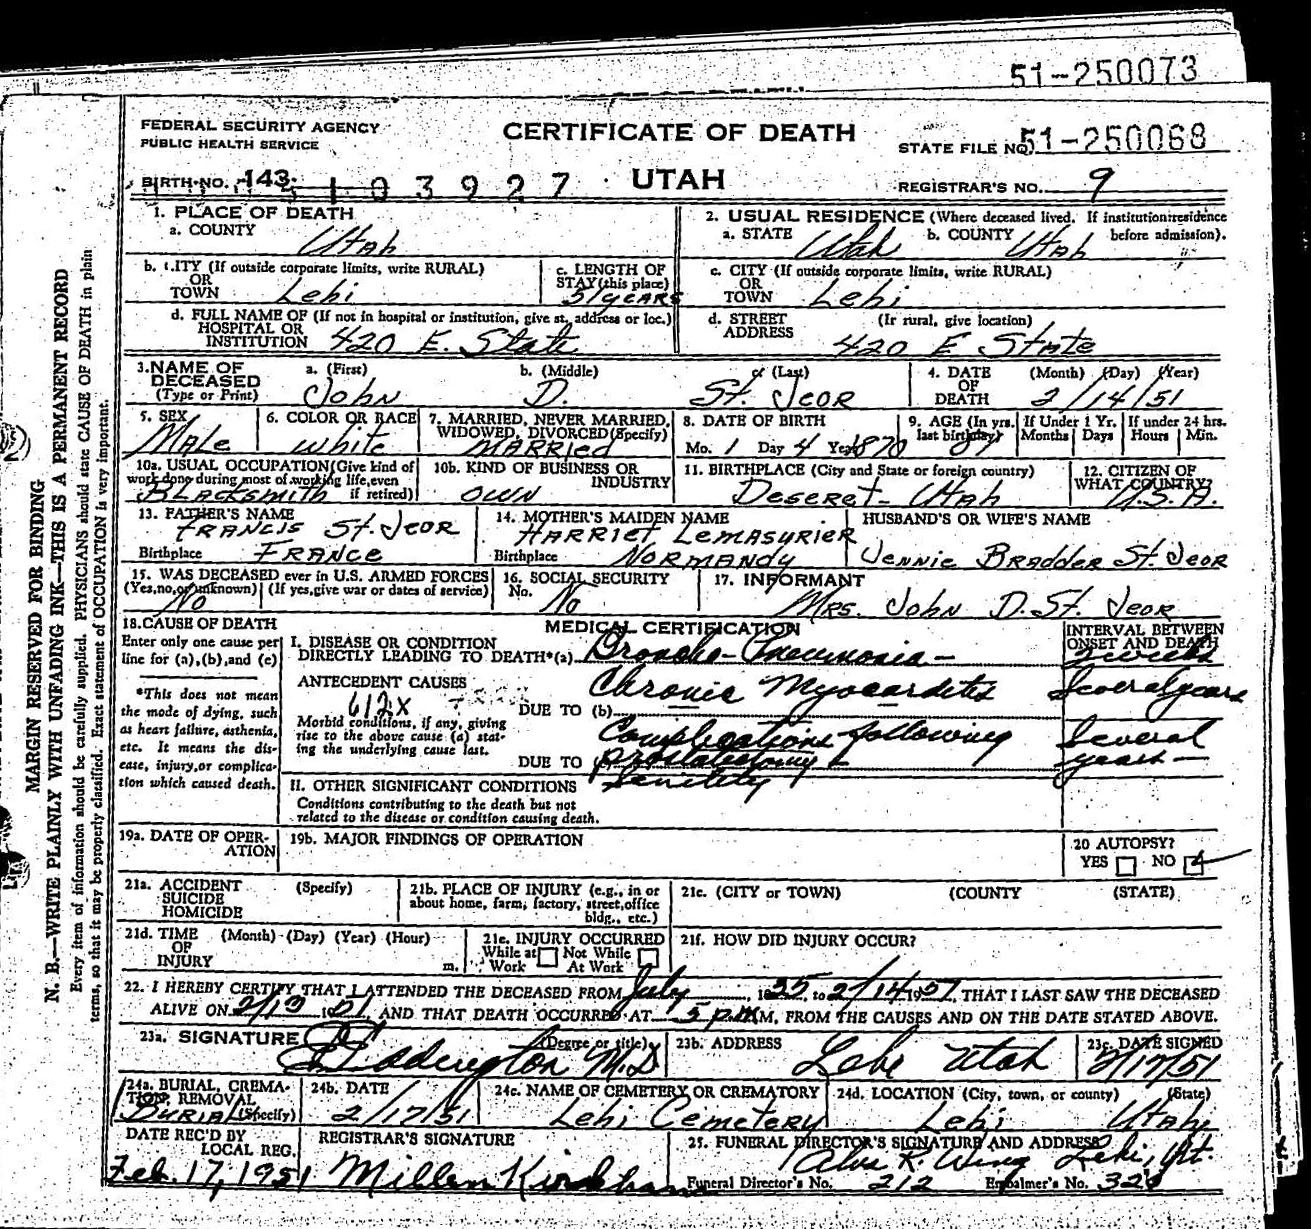 51-250073
FEDERAL SECURITY AGENCY
PUBLIC HEALTH SERVICE
CERTIFICATE OF DEATH
STATE FILE NO. 51-250068
BIRTH NO. 143. 5103927
UTAH
REGISTRAR'S NO. 9
MARGIN RESERVED FOR BINDING
N. B.—WRITE PLAINLY WITH UNFADING INK—THIS IS A PERMANENT RECORD
Every item of information should be carefully supplied. PHYSICIANS should state CAUSE OF DEATH in plain
terms, so that it may be properly classified. Exact statement of OCCUPATION is very important.
1. PLACE OF DEATH
a. COUNTY Utah
2. USUAL RESIDENCE (Where deceased lived. If institution: residence
a. STATE Utah b. COUNTY Utah before admission).
b. CITY (If outside corporate limits, write RURAL)
OR
TOWN Lehi
c. LENGTH OF
STAY (this place)
51 years
c. CITY (If outside corporate limits, write RURAL)
OR
TOWN Lehi
d. FULL NAME OF (If not in hospital or institution, give st. address or loc.)
HOSPITAL OR
INSTITUTION 420 E. State
d. STREET (Ir rural, give location)
ADDRESS 420 E State
3. NAME OF DECEASED (Type or Print)
a. (First) b. (Middle) c. (Last)
John D. St. Jeor
4. DATE OF DEATH (Month) (Day) (Year)
2/14/51
5. SEX
Male
6. COLOR OR RACE
White
7. MARRIED, NEVER MARRIED,
WIDOWED, DIVORCED (Specify)
MARRIED
8. DATE OF BIRTH
Mo. 1 Day 4 Year 1870
9. AGE (In yrs. last birthday)
If Under 1 Yr. Months Days
If under 24 hrs. Hours Min.
10a. USUAL OCCUPATION (Give kind of
work done during most of working life, even
if retired)
Blacksmith
10b. KIND OF BUSINESS OR
INDUSTRY
OWN
11. BIRTHPLACE (City and State or foreign country)
Deseret- Utah
12. CITIZEN OF
WHAT COUNTRY?
U.S.A.
13. FATHER'S NAME
FRANCIS St. Jeor
Birthplace FRANCE
14. MOTHER'S MAIDEN NAME
HARRIET LEMASURIER
Birthplace NORMANDY
HUSBAND'S OR WIFE'S NAME
Jennie Bradder St. Jeor
15. WAS DECEASED ever in U.S. ARMED FORCES
(Yes, no, or unknown) (If yes, give war or dates of service)
No
16. SOCIAL SECURITY
No. No
17. INFORMANT
Mrs. John D. St. Jeor
18. CAUSE OF DEATH
Enter only one cause per
line for (a), (b), and (c)
*This does not mean
the mode of dying, such
as heart failure, asthenia,
etc. It means the dis-
ease, injury, or complica-
tion which caused death.
MEDICAL CERTIFICATION
INTERVAL BETWEEN
ONSET AND DEATH
I. DISEASE OR CONDITION
DIRECTLY LEADING TO DEATH*(a) Broncho-Pneumonia- 2 weeks
ANTECEDENT CAUSES
612X
DUE TO (b) Chronic Myocarditis Several years
Morbid conditions, if any, giving
rise to the above cause (a) stat-
ing the underlying cause last.
DUE TO (c) Complications following Several
prostatectomy years-
Senility
II. OTHER SIGNIFICANT CONDITIONS
Conditions contributing to the death but not
related to the disease or condition causing death.
19a. DATE OF OPER-
ATION
19b. MAJOR FINDINGS OF OPERATION
20 AUTOPSY?
YES NO
21a. ACCIDENT (Specify)
SUICIDE
HOMICIDE
21b. PLACE OF INJURY (e.g., in or
about home, farm, factory, street, office
bldg., etc.)
21c. (CITY or TOWN) (COUNTY) (STATE)
21d. TIME (Month) (Day) (Year) (Hour)
OF
INJURY m.
21e. INJURY OCCURRED
While at Work Not While At Work
21f. HOW DID INJURY OCCUR?
22. I HEREBY CERTIFY THAT I ATTENDED THE DECEASED FROM July, 1935, to 2/14 1951, THAT I LAST SAW THE DECEASED
ALIVE ON 2/13 1951, AND THAT DEATH OCCURRED AT 5 p.m M, FROM THE CAUSES AND ON THE DATE STATED ABOVE.
23a. SIGNATURE (Degree or title)
Eddington M.D
23b. ADDRESS
Lehi Utah
23c. DATE SIGNED
2/17/51
24a. BURIAL, CREMA-
TION, REMOVAL
(Specify)
Burial
24b. DATE
2/17/51
24c. NAME OF CEMETERY OR CREMATORY
Lehi Cemetery
24d. LOCATION (City, town, or county) (State)
Lehi Utah
DATE REC'D BY
LOCAL REG.
Feb. 17, 1951
REGISTRAR'S SIGNATURE
Millen Kirkham
25. FUNERAL DIRECTOR'S SIGNATURE AND ADDRESS
Alva R. Wing Lehi, Ut.
Funeral Director's No. 212 Embalmer's No.